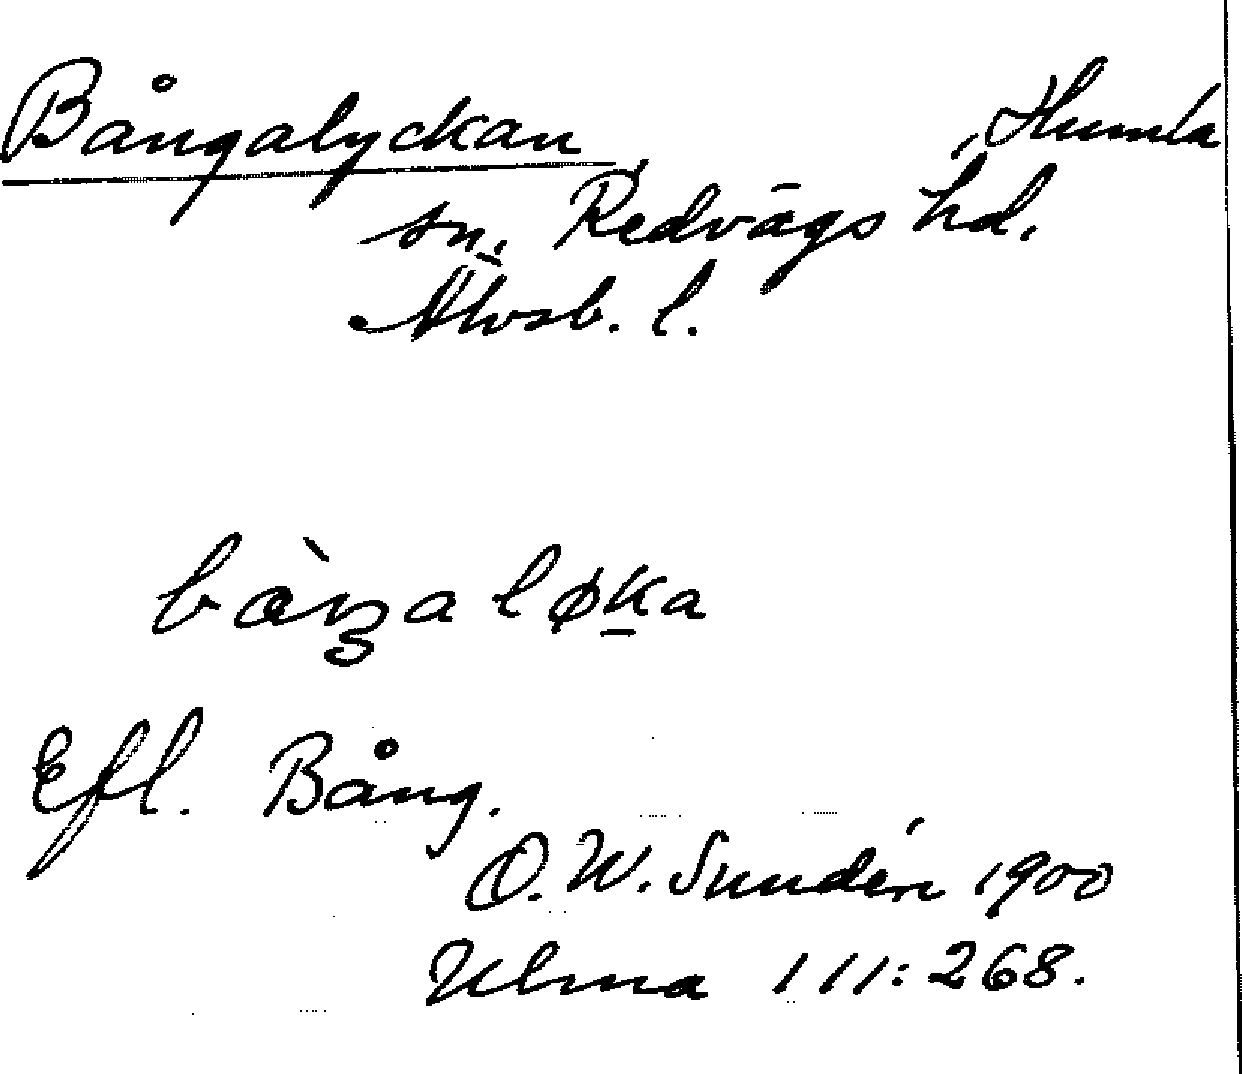 Bångalyckan, Humla
sn. Redvägs hd.
Älvsb. l.
bàŋaløka
Efl. Bång.
O. W. Sundén 1900
Ulma 111:268.